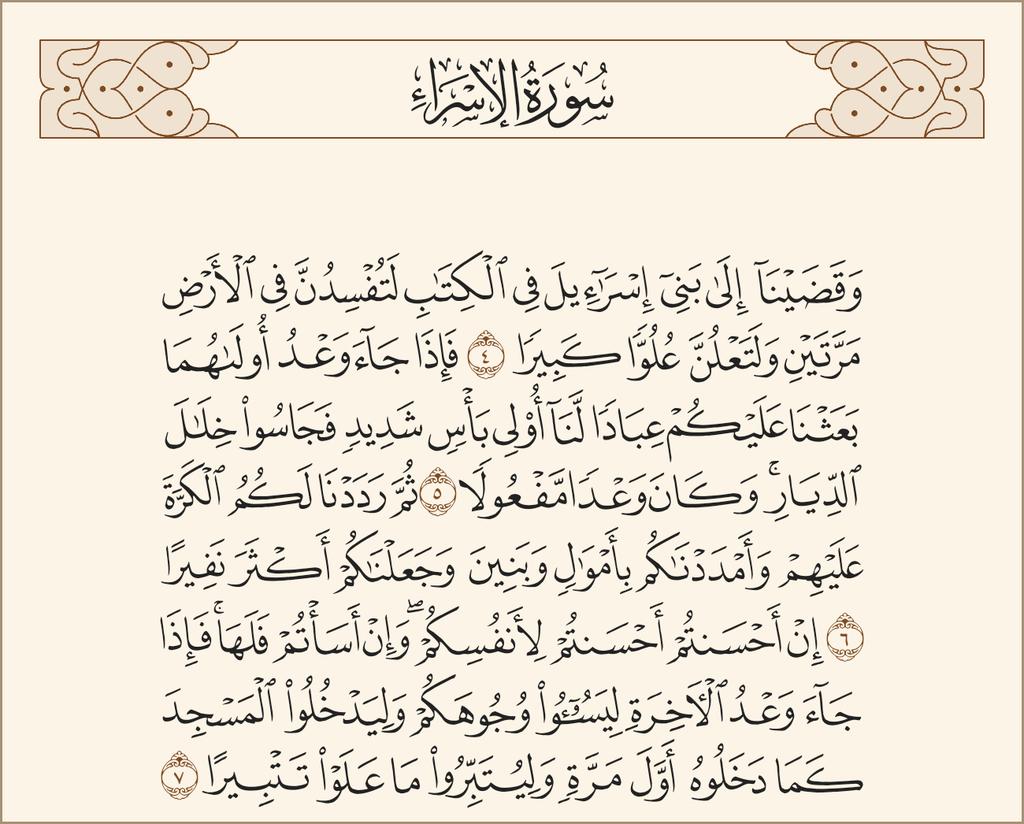 سُورَةُ الإِسْرَاءِ
وَقَضَيْنَآ إِلَىٰ بَنِىٓ إِسْرَٰٓءِيلَ فِى ٱلْكِتَٰبِ لَتُفْسِدُنَّ فِى ٱلْأَرْضِ
مَرَّتَيْنِ وَلَتَعْلُنَّ عُلُوًّا كَبِيرًا ٤ فَإِذَا جَآءَ وَعْدُ أُولَىٰهُمَا
بَعَثْنَا عَلَيْكُمْ عِبَادًا لَّنَآ أُو۟لِى بَأْسٍ شَدِيدٍ فَجَاسُوا۟ خِلَٰلَ
ٱلدِّيَارِ ۚ وَكَانَ وَعْدًا مَّفْعُولًا ٥ ثُمَّ رَدَدْنَا لَكُمُ ٱلْكَرَّةَ
عَلَيْهِمْ وَأَمْدَدْنَٰكُم بِأَمْوَٰلٍ وَبَنِينَ وَجَعَلْنَٰكُمْ أَكْثَرَ نَفِيرًا
٦ إِنْ أَحْسَنتُمْ أَحْسَنتُمْ لِأَنفُسِكُمْ ۖ وَإِنْ أَسَأْتُمْ فَلَهَا ۚ فَإِذَا
جَآءَ وَعْدُ ٱلْءَاخِرَةِ لِيَسُۥٓـُٔوا۟ وُجُوهَكُمْ وَلِيَدْخُلُوا۟ ٱلْمَسْجِدَ
كَمَا دَخَلُوهُ أَوَّلَ مَرَّةٍ وَلِيُتَبِّرُوا۟ مَا عَلَوْا۟ تَتْبِيرًا ٧